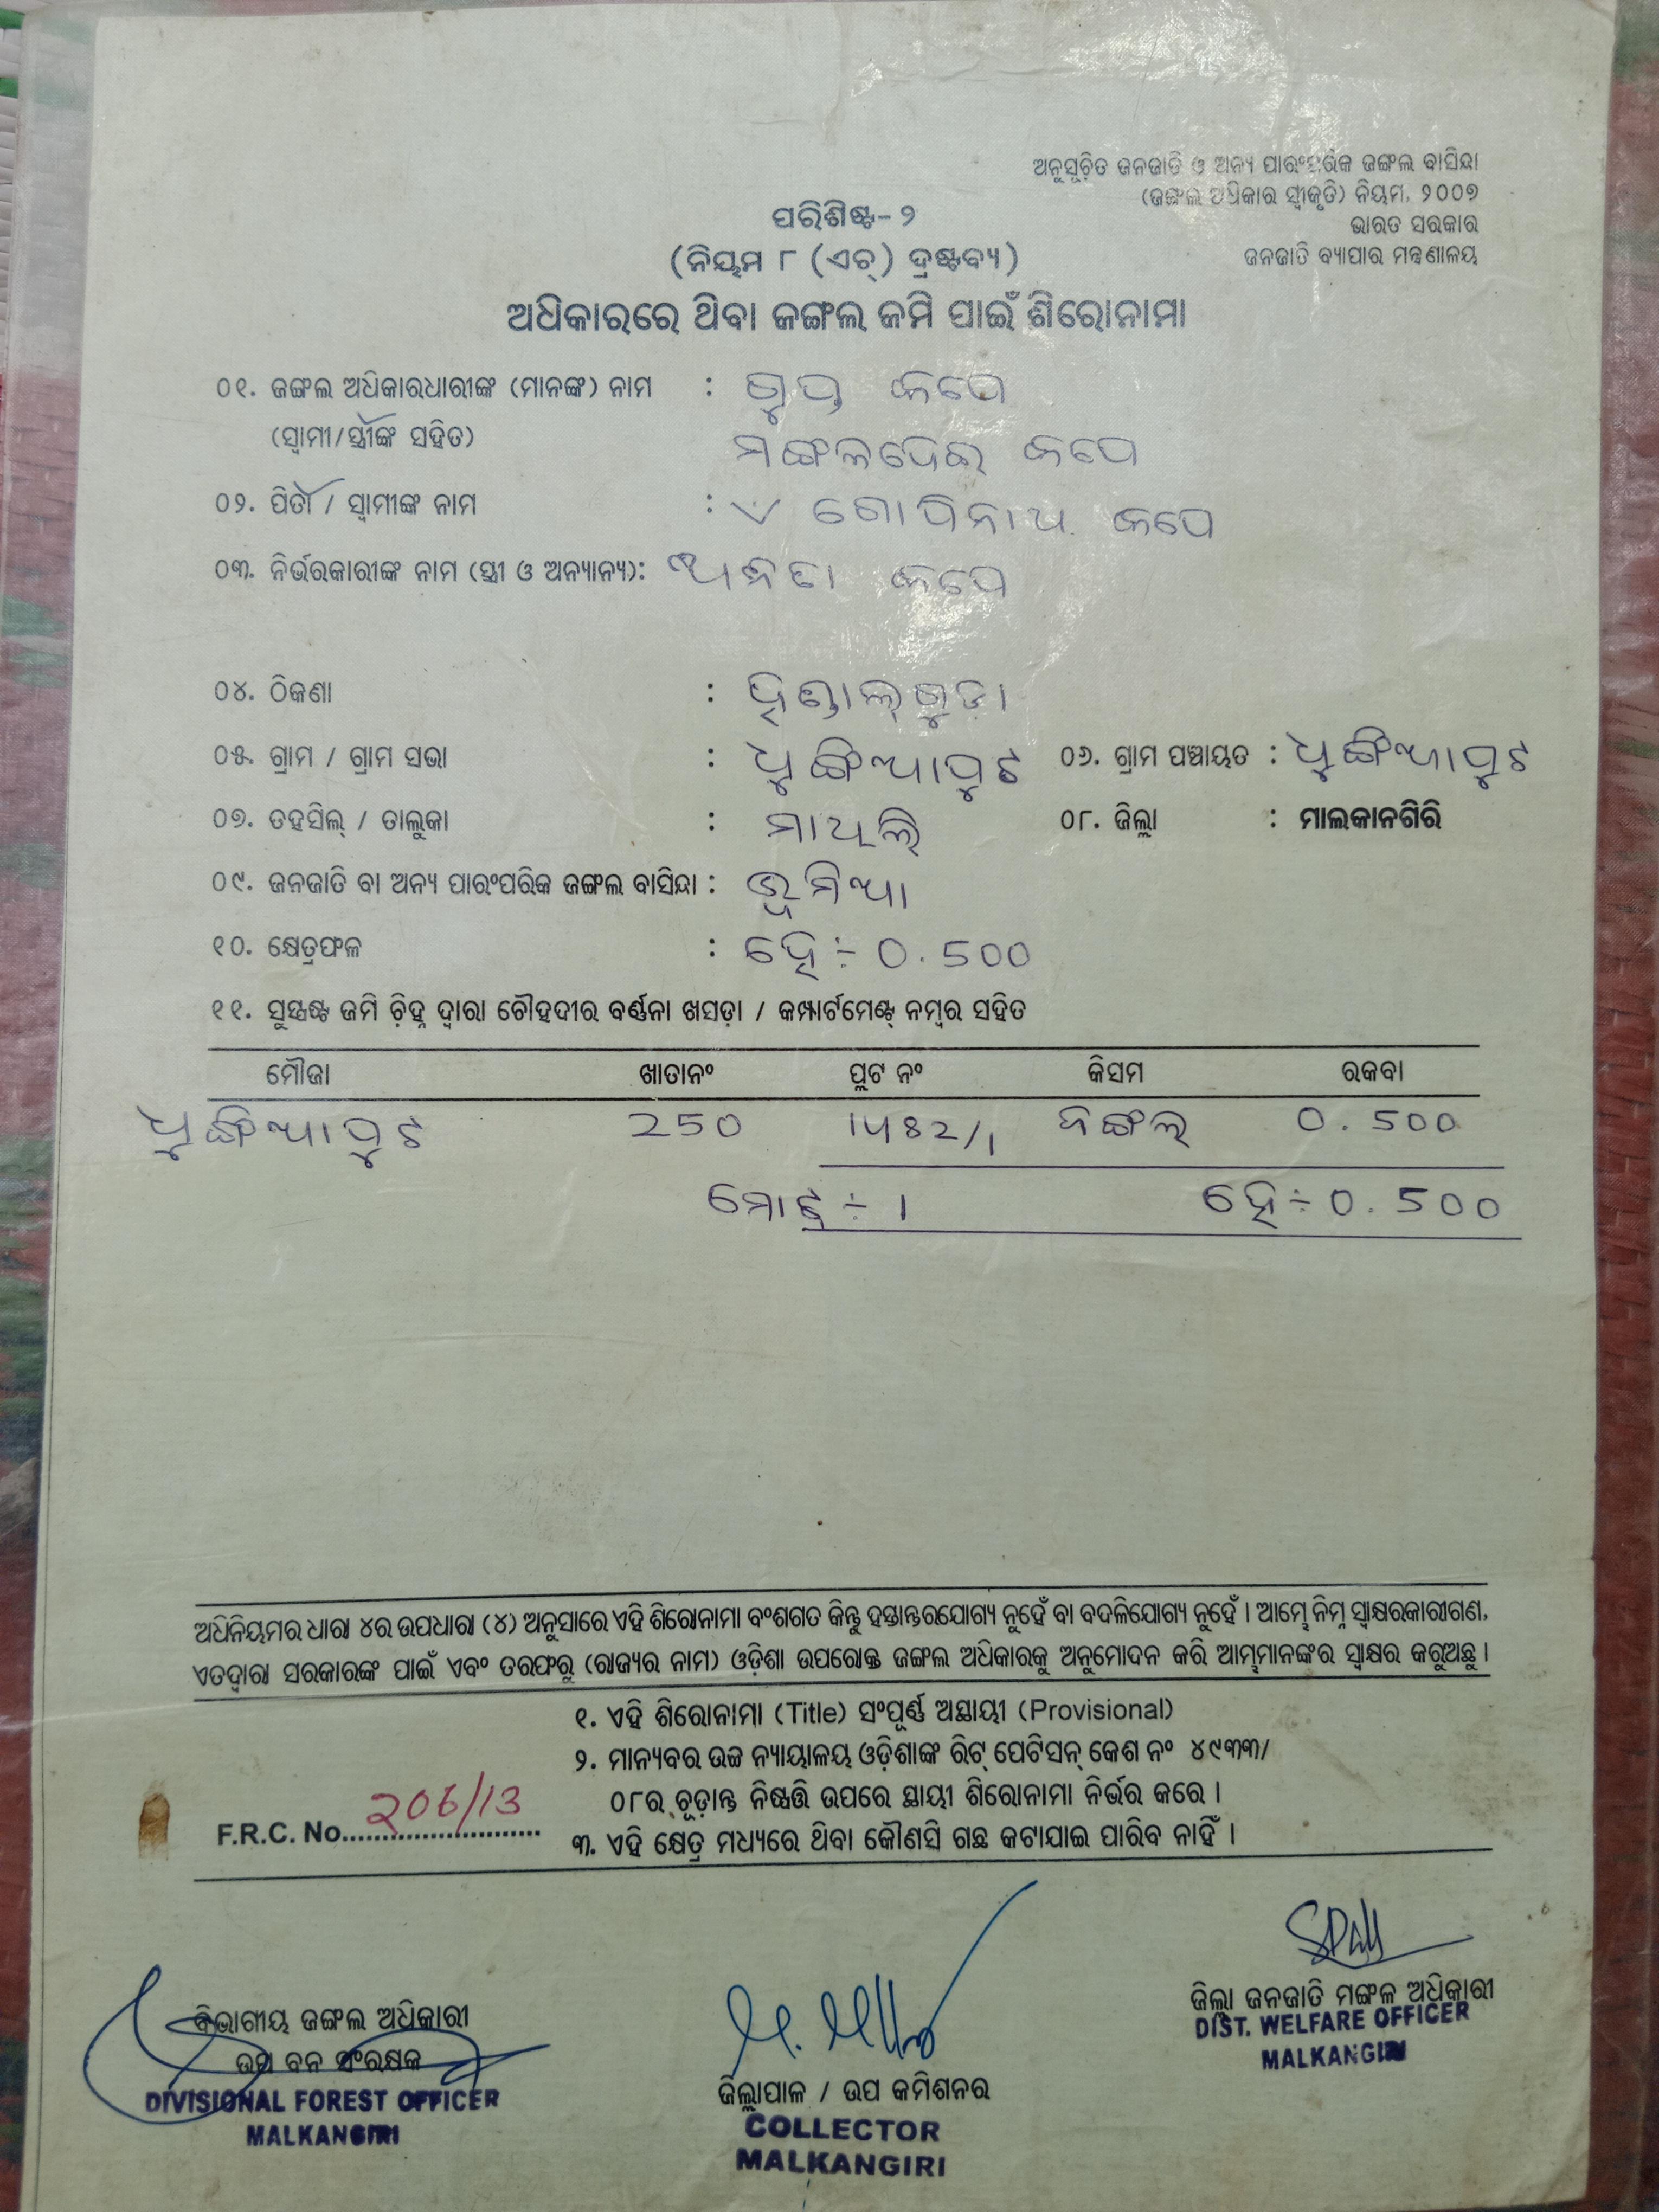 ଅନୁସୂଚିତ ଜନଜାତି ଓ ଅନ୍ୟ ପାରଂପରିକ ଜଙ୍ଗଲ ବାସିନ୍ଦା
(ଜଙ୍ଗଲ ଅଧିକାର ସ୍ୱୀକୃତି) ନିୟମ, ୨୦୦୭
ଭାରତ ସରକାର
ଜନଜାତି ବ୍ୟାପାର ମନ୍ତ୍ରଣାଳୟ
ପରିଶିଷ୍ଟ- ୨
(ନିୟମ ୮ (ଏଚ୍) ଦ୍ରଷ୍ଟବ୍ୟ)
ଅଧିକାରରେ ଥିବା ଜଙ୍ଗଲ ଜମି ପାଇଁ ଶିରୋନାମା
୦୧. ଜଙ୍ଗଲ ଅଧିକାରଧାରୀଙ୍କ (ମାନଙ୍କ) ନାମ :
(ସ୍ୱାମୀ/ସ୍ତ୍ରୀଙ୍କ ସହିତ)
୦୨. ପିତା / ସ୍ୱାମୀଙ୍କ ନାମ : ଗୋପିନାଥ
୦୩. ନିର୍ଭରକାରୀଙ୍କ ନାମ (ସ୍ତ୍ରୀ ଓ ଅନ୍ୟାନ୍ୟ):
୦୪. ଠିକଣା :
୦୫. ଗ୍ରାମ / ଗ୍ରାମ ସଭା : ଧୁଙ୍ଗିଆପୁଟ ୦୬. ଗ୍ରାମ ପଞ୍ଚାୟତ : ଧୁଙ୍ଗିଆପୁଟ
୦୭. ତହସିଲ୍ / ତାଲୁକା : ମାଥିଲି ୦୮. ଜିଲ୍ଲା : ମାଲକାନଗିରି
୦୯. ଜନଜାତି ବା ଅନ୍ୟ ପାରଂପରିକ ଜଙ୍ଗଲ ବାସିନ୍ଦା : ଭୂମିଆ
୧୦. କ୍ଷେତ୍ରଫଳ : ହେ÷ 0.500
୧୧. ସୁସ୍ପଷ୍ଟ ଜମି ଚିହ୍ନ ଦ୍ୱାରା ଚୌହଦୀର ବର୍ଣ୍ଣନା ଖସଡ଼ା / କମ୍ପାର୍ଟମେଣ୍ଟ୍ ନମ୍ବର ସହିତ
ମୌଜା ଖାତାନଂ ପ୍ଲଟ ନଂ କିସମ ରକବା
ଧୁଙ୍ଗିଆପୁଟ 250 ଜଙ୍ଗଲ 0.500
ମୋଟ ÷ 1 ହେ÷0.500
ଅଧିନିୟମର ଧାରା ୪ର ଉପଧାରା (୪) ଅନୁସାରେ ଏହି ଶିରୋନାମା ବଂଶଗତ କିନ୍ତୁ ହସ୍ତାନ୍ତରଯୋଗ୍ୟ ନୁହେଁ ବା ବଦଳିଯୋଗ୍ୟ ନୁହେଁ । ଆମ୍ଭେ ନିମ୍ନ ସ୍ୱାକ୍ଷରକାରୀଗଣ,
ଏତଦ୍ୱାରା ସରକାରଙ୍କ ପାଇଁ ଏବଂ ତରଫରୁ (ରାଜ୍ୟର ନାମ) ଓଡ଼ିଶା ଉପରୋକ୍ତ ଜଙ୍ଗଲ ଅଧିକାରକୁ ଅନୁମୋଦନ କରି ଆମ୍ଭମାନଙ୍କର ସ୍ୱାକ୍ଷର କରୁଅଛୁ ।
୧. ଏହି ଶିରୋନାମା (Title) ସଂପୂର୍ଣ୍ଣ ଅସ୍ଥାୟୀ (Provisional)
୨. ମାନ୍ୟବର ଉଚ୍ଚ ନ୍ୟାୟାଳୟ ଓଡ଼ିଶାଙ୍କ ରିଟ୍ ପେଟିସନ୍ କେଶ ନଂ ୪୯୩୩/
୦୮ର ଚୂଡ଼ାନ୍ତ ନିଷ୍ପତ୍ତି ଉପରେ ସ୍ଥାୟୀ ଶିରୋନାମା ନିର୍ଭର କରେ ।
F.R.C. No. 206/13
୩. ଏହି କ୍ଷେତ୍ର ମଧ୍ୟରେ ଥିବା କୌଣସି ଗଛ କଟାଯାଇ ପାରିବ ନାହିଁ ।
ବିଭାଗୀୟ ଜଙ୍ଗଲ ଅଧିକାରୀ
ଉପ ବନ ସଂରକ୍ଷକ
DIVISIONAL FOREST OFFICER
MALKANGIRI
ଜିଲ୍ଲାପାଳ / ଉପ କମିଶନର
COLLECTOR
MALKANGIRI
ଜିଲ୍ଲା ଜନଜାତି ମଙ୍ଗଳ ଅଧିକାରୀ
DIST. WELFARE OFFICER
MALKANGIRI